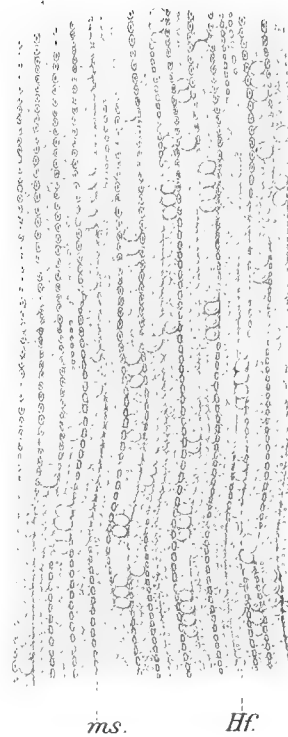 ms. Hf.